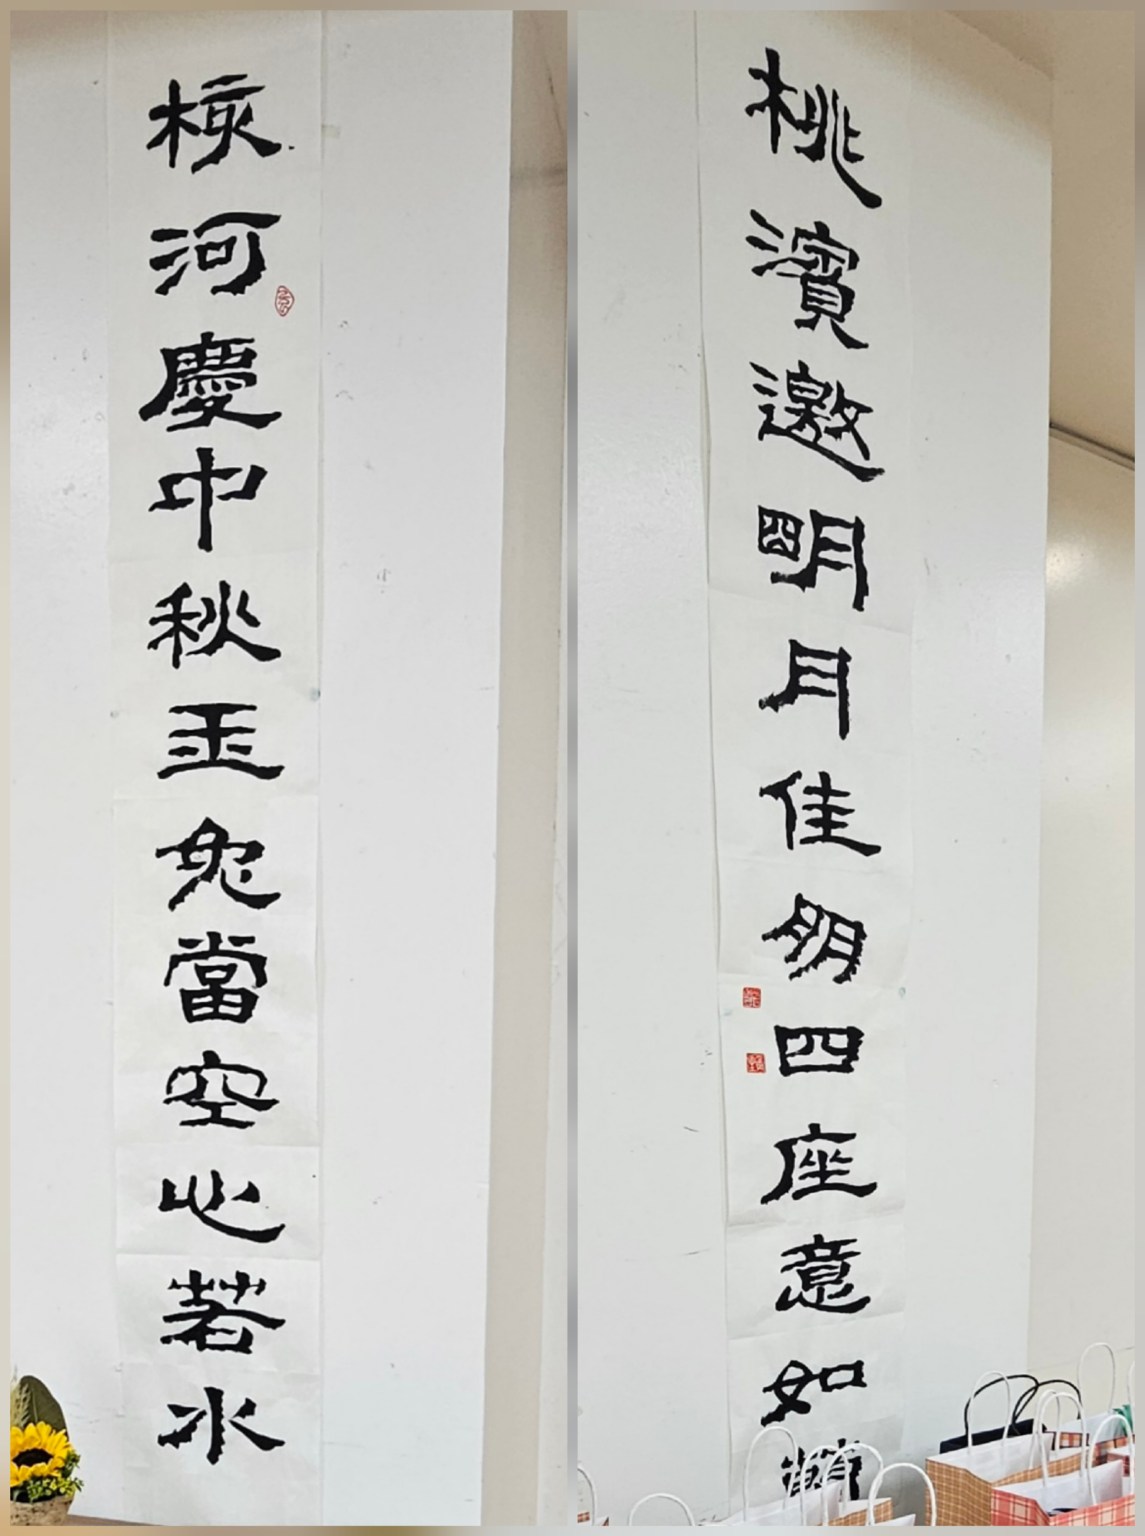 核河慶中秋玉兔當空心若水
桃濱邀明月佳朋四座意如